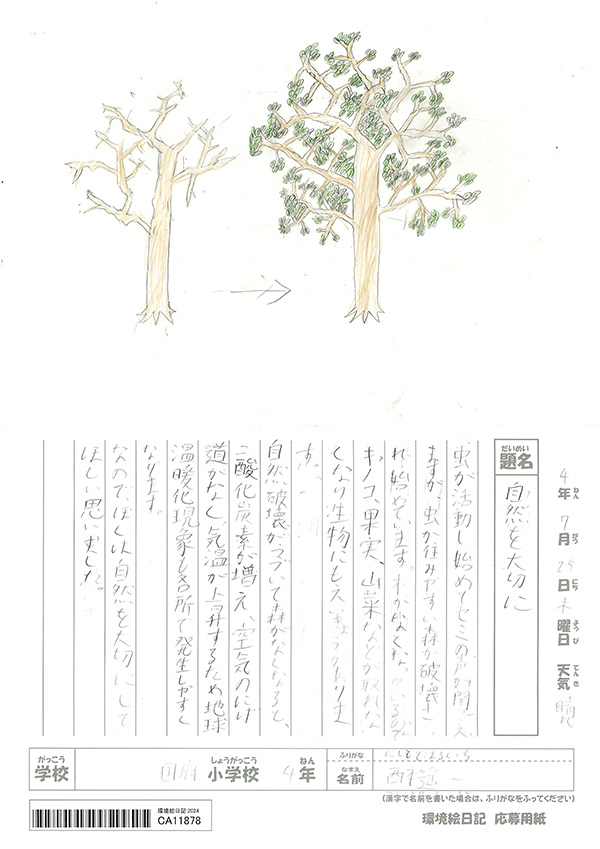 4年 7月 25日 木曜日 天気 晴
ねん がつ にち ようび てんき
だいめい
題名
自然を大切に
虫が活動し始めてセミの声が聞こえ
ますが、虫が住みやすい森が破壊さ
れ始めています。木がなくなっているので
キノコ、果実、山菜などが取れな
くなり生物にもえいきょうがありま
す。
自然破壊がつづいて森がなくなると、
二酸化炭素が増え、空気のにげ
道がなく、気温が上昇するため地球
温暖化現象も各所で発生しやすく
なります。
なので、ぼくは自然を大切にして
ほしい思いました。
がっこう しょうがっこう ねん ふりがな
学校 国府 小学校 4年
なまえ
名前 一
(漢字で名前を書いた場合は、ふりがなをふってください)
環境絵日記 2024
CA11878
環境絵日記 応募用紙